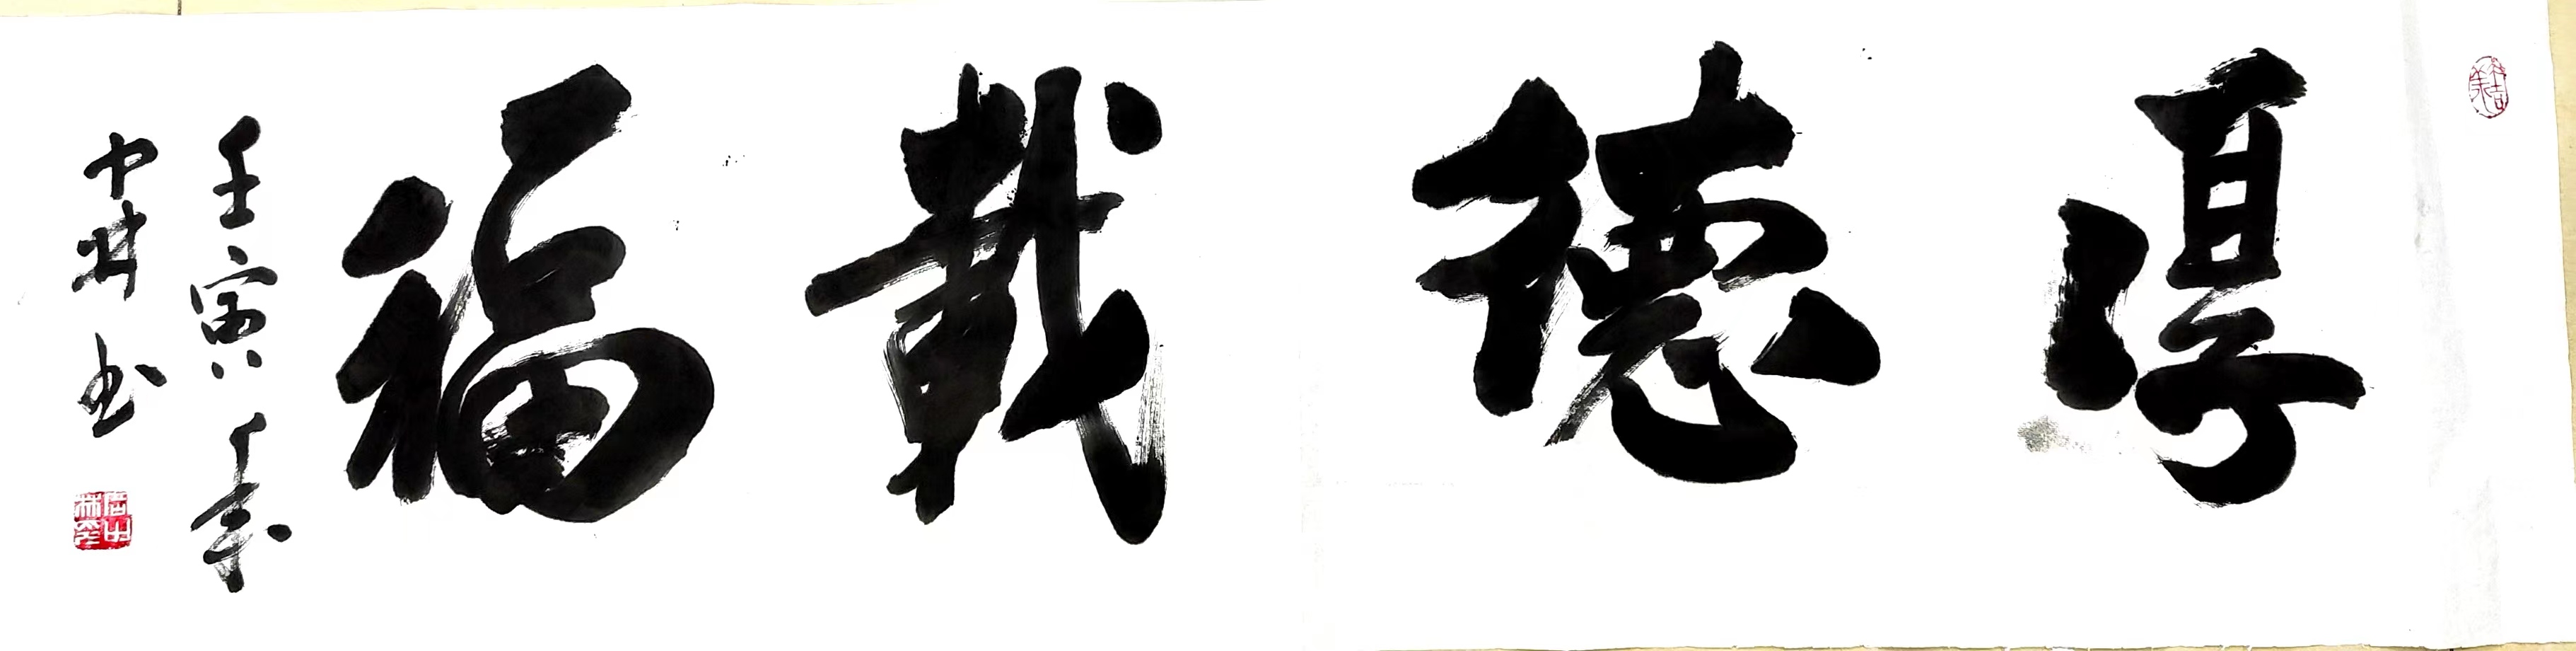 厚德载福
壬寅年
中林书